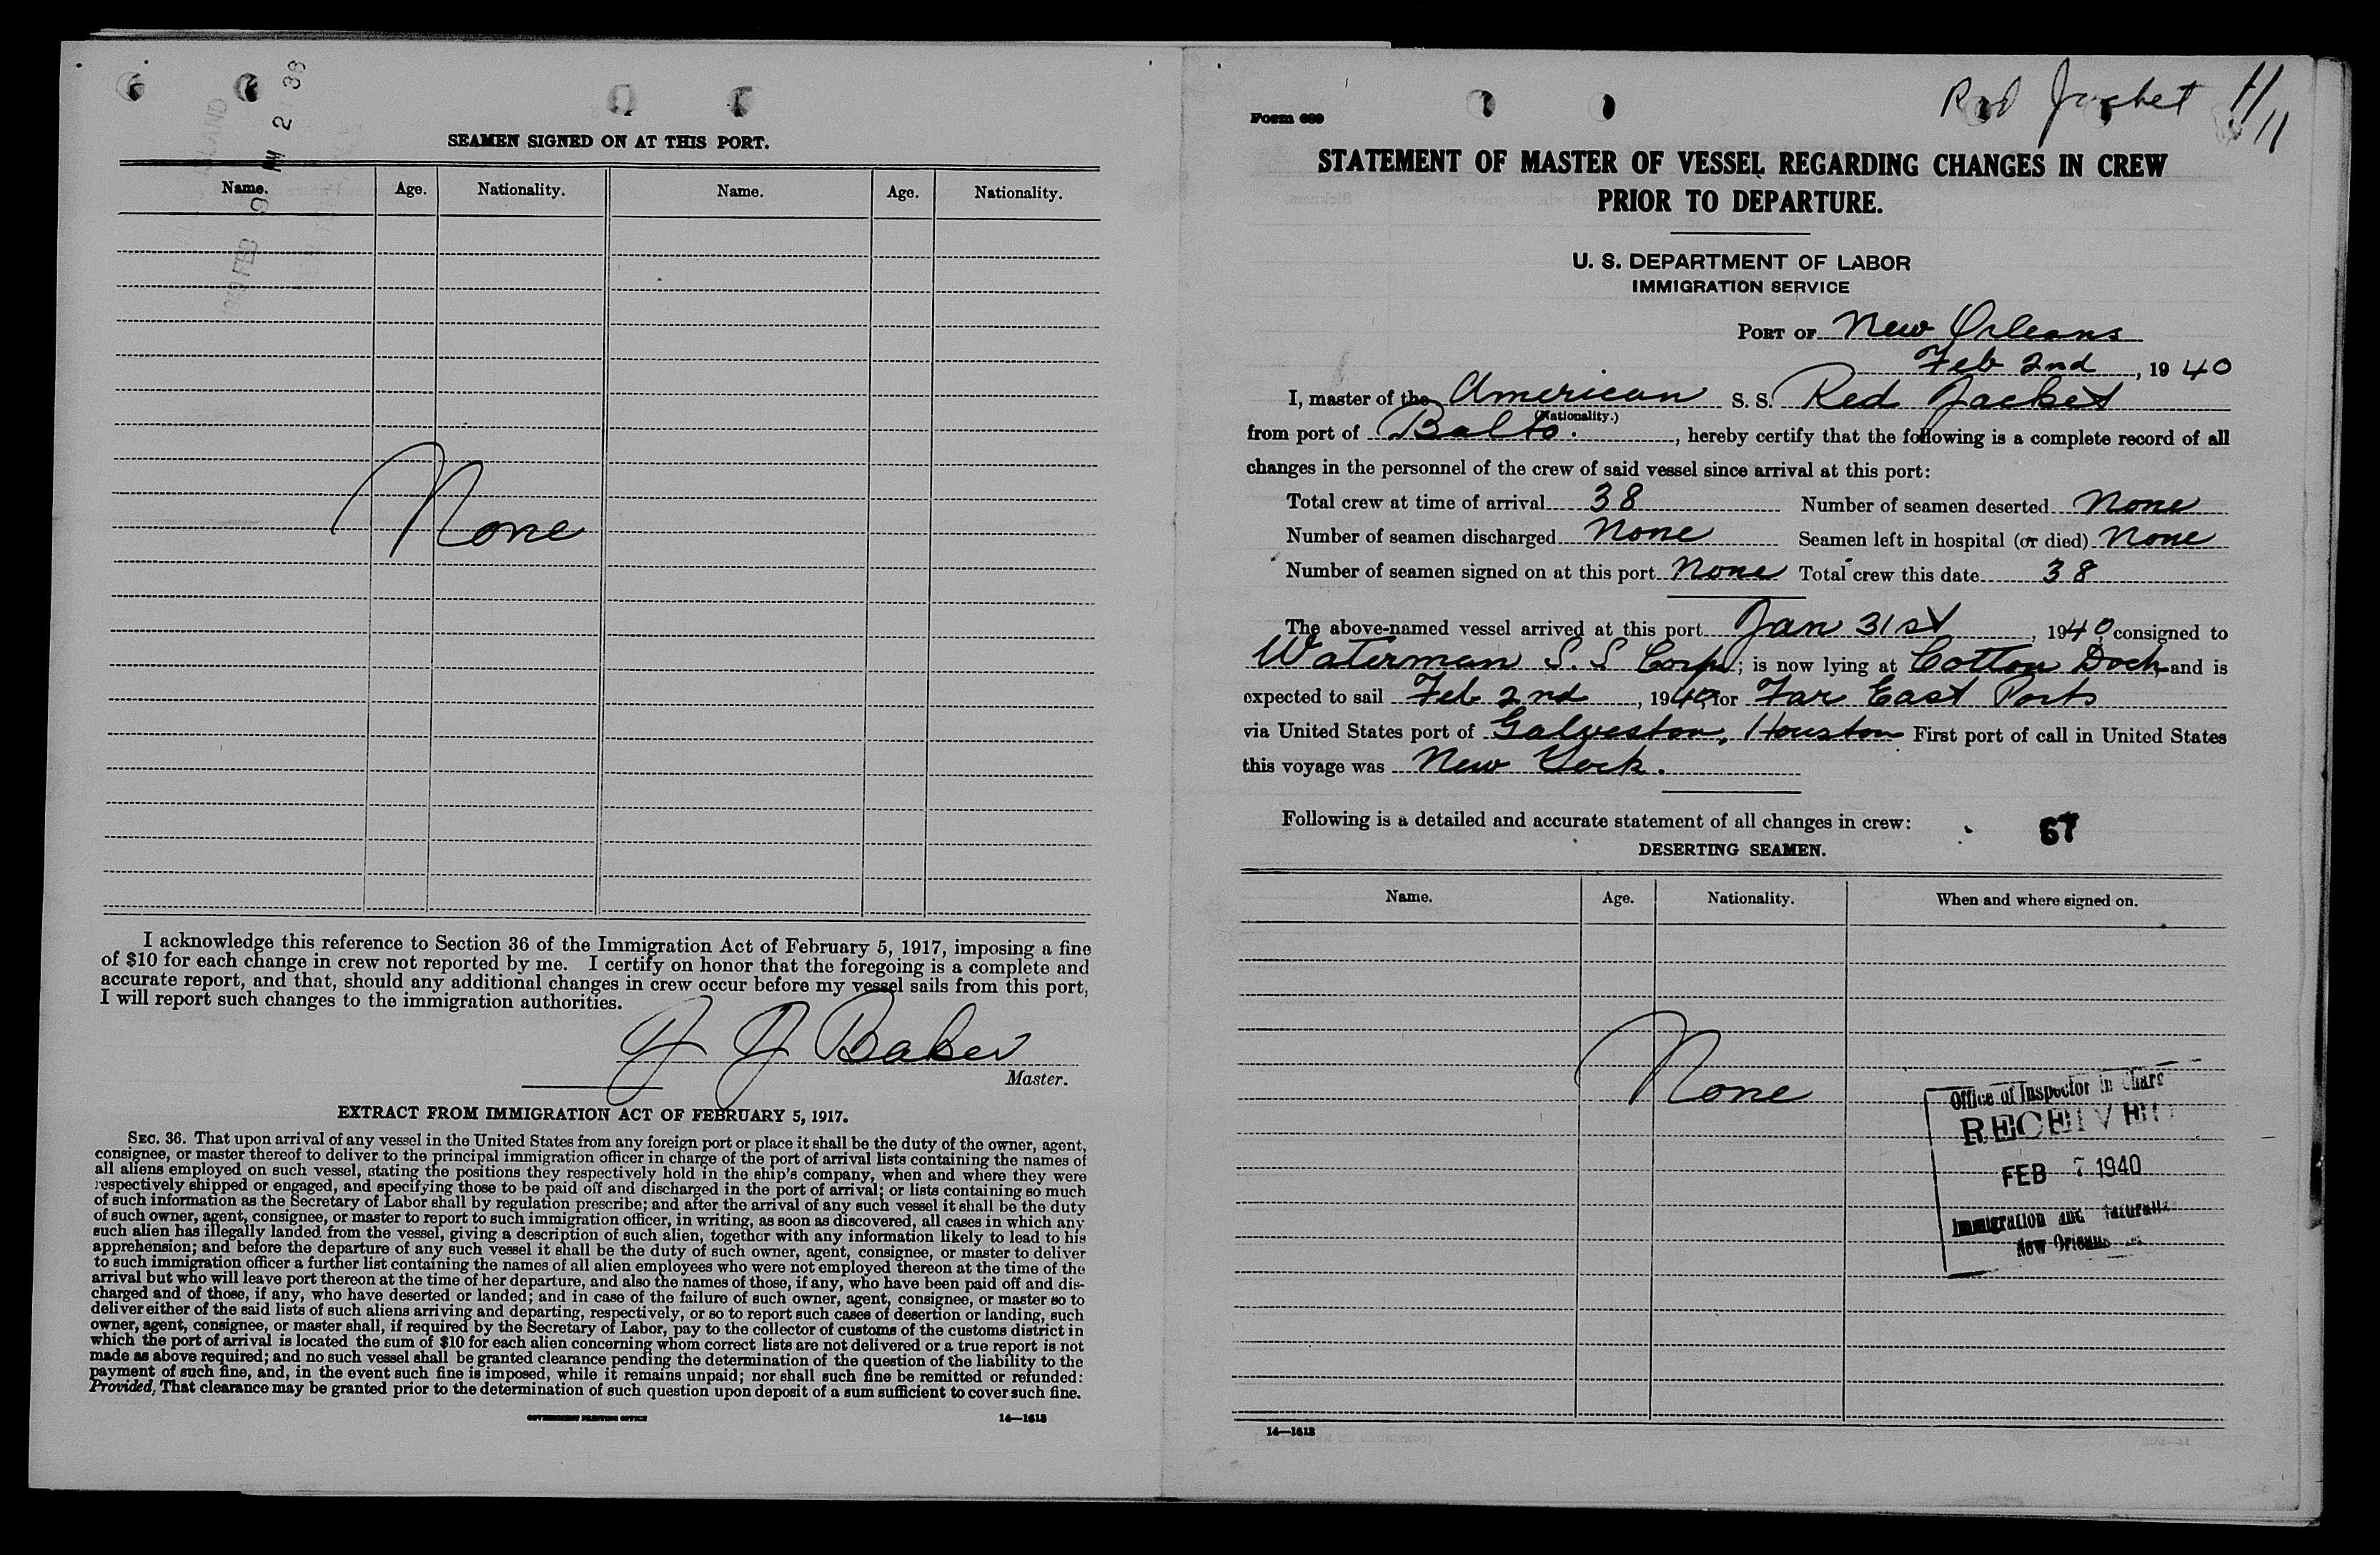 SEAMEN SIGNED ON AT THIS PORT.
Name. Age. Nationality. Name. Age. Nationality.
None
I acknowledge this reference to Section 36 of the Immigration Act of February 5, 1917, imposing a fine
of $10 for each change in crew not reported by me. I certify on honor that the foregoing is a complete and
accurate report, and that, should any additional changes in crew occur before my vessel sails from this port,
I will report such changes to the immigration authorities.
Baker
Master.
EXTRACT FROM IMMIGRATION ACT OF FEBRUARY 5, 1917.
SEC. 36. That upon arrival of any vessel in the United States from any foreign port or place it shall be the duty of the owner, agent,
consignee, or master thereof to deliver to the principal immigration officer in charge of the port of arrival lists containing the names of
all aliens employed on such vessel, stating the positions they respectively hold in the ship's company, when and where they were
respectively shipped or engaged, and specifying those to be paid off and discharged in the port of arrival; or lists containing so much
of such information as the Secretary of Labor shall by regulation prescribe; and after the arrival of any such vessel it shall be the duty
of such owner, agent, consignee, or master to report to such immigration officer, in writing, as soon as discovered, all cases in which any
such alien has illegally landed from the vessel, giving a description of such alien, together with any information likely to lead to his
apprehension; and before the departure of any such vessel it shall be the duty of such owner, agent, consignee, or master to deliver
to such immigration officer a further list containing the names of all alien employees who were not employed thereon at the time of the
arrival but who will leave port thereon at the time of her departure, and also the names of those, if any, who have been paid off and dis-
charged and of those, if any, who have deserted or landed; and in case of the failure of such owner, agent, consignee, or master so to
deliver either of the said lists of such aliens arriving and departing, respectively, or so to report such cases of desertion or landing, such
owner, agent, consignee, or master shall, if required by the Secretary of Labor, pay to the collector of customs of the customs district in
which the port of arrival is located the sum of $10 for each alien concerning whom correct lists are not delivered or a true report is not
made as above required; and no such vessel shall be granted clearance pending the determination of the question of the liability to the
payment of such fine, and, in the event such fine is imposed, while it remains unpaid; nor shall such fine be remitted or refunded:
Provided, That clearance may be granted prior to the determination of such question upon deposit of a sum sufficient to cover such fine.
GOVERNMENT PRINTING OFFICE 14—1613
Red Jacket
Form 689
STATEMENT OF MASTER OF VESSEL REGARDING CHANGES IN CREW
PRIOR TO DEPARTURE.
U. S. DEPARTMENT OF LABOR
IMMIGRATION SERVICE
PORT OF New Orleans
Feb 2nd, 1940
I, master of the American S. S. Red Jacket
(Nationality.)
from port of Balto., hereby certify that the following is a complete record of all
changes in the personnel of the crew of said vessel since arrival at this port:
Total crew at time of arrival 38 Number of seamen deserted None
Number of seamen discharged None Seamen left in hospital (or died) None
Number of seamen signed on at this port None Total crew this date 38
The above-named vessel arrived at this port Jan 31st, 1940, consigned to
Waterman S. S Corp; is now lying at Cotton Dock and is
expected to sail Feb 2nd, 1940 for Far East Ports
via United States port of Galveston, Houston First port of call in United States
this voyage was New York.
Following is a detailed and accurate statement of all changes in crew:
67
DESERTING SEAMEN.
Name. Age. Nationality. When and where signed on.
None
Office of Inspector in
RECEIVED
FEB 7 1940
Immigration and
New Orleans
14—1613